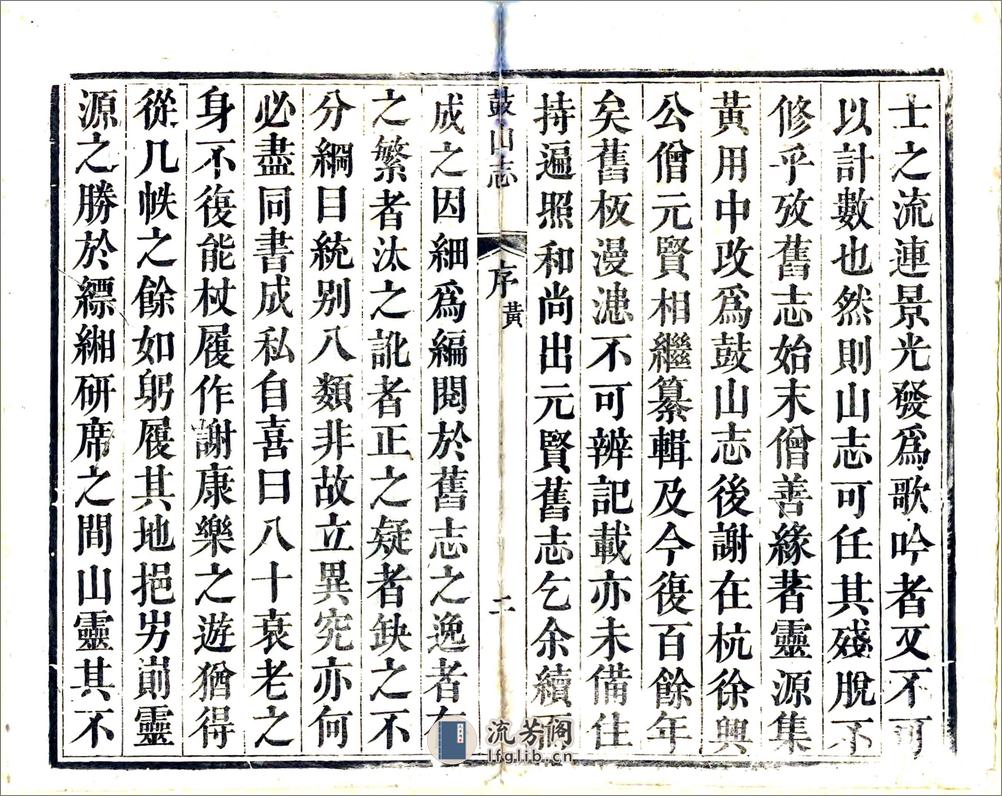 士之流連景光發爲歌吟者又不可
以計數也然則山志可任其殘脫不
修乎攷舊志始末僧善緣著靈源集
黃用中改爲鼓山志後謝在杭徐興
公僧元賢相繼纂輯及今復百餘年
矣舊板漫漶不可辨記載亦未備住
持遍照和尚出元賢舊志乞余續
鼓山志 序 黃 二
成之因細爲編閱於舊志之逸者
之繁者汰之訛者正之疑者缺之不
分綱目統别八類非故立異究亦何
必盡同書成私自喜曰八十衰老之
身不復能杖履作謝康樂之遊猶得
從几帙之餘如躬履其地挹屴崱靈
源之勝於縹緗研席之間山靈其不
流芳阁
lfglib.cn